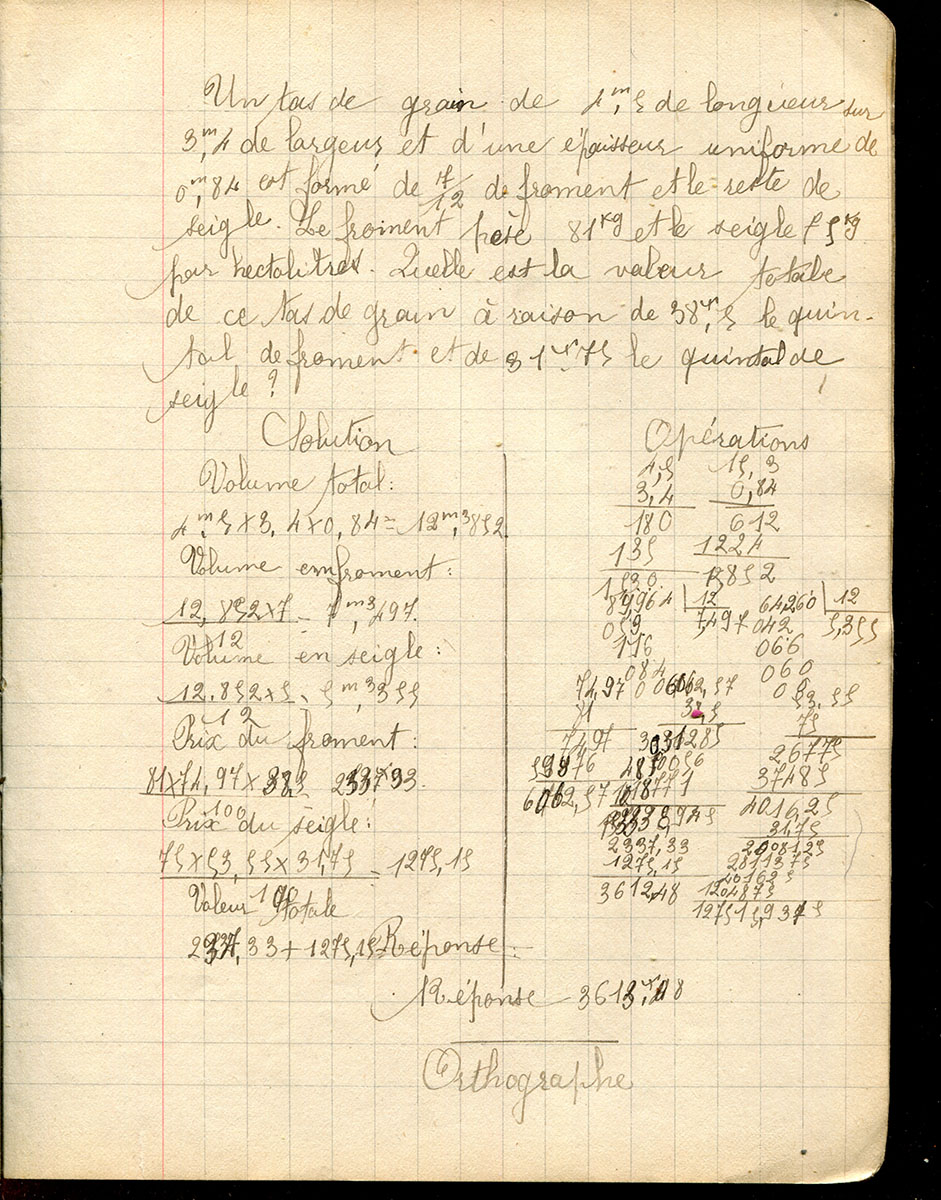 Un tas de grain de 4m,5 de longueur sur
3m,4 de largeur et d'une épaisseur uniforme de
0m,84 est formé de 7/12 de froment et le reste de
seigle. Le froment pèse 81kg et le seigle 75kg
par hectolitres. Quelle est la valeur totale
de ce tas de grain à raison de 38fr,5 le quin-
tal de froment et de 31fr,75 le quintal de
seigle ?
Solution
Volume total:
4m,5 x 3,4 x 0,84 = 12m3,852
Volume en froment:
12,852 x 7 = 7m3,497
12
Volume en seigle:
12.852 x 5 = 5m3,355
12
Prix du froment:
81 x 74,97 x
100
Prix du seigle:
75 x 53,55 x 31,75 = 1275,15
100
Valeur totale
33 + 1275,15 Réponse:
Opérations
4,5 15,3
3,4 0,84
180 612
135 1224
1530 12852
89964 12 64260 12
059 7,497 042 5,355
116 066
084 060
74,97 00
53,55
81 75
7497 26775
59976 37485
6062,57 401625
3175
2337,33 2008125
1275,15 2811375
401625
3612,48 1204875
Réponse
Orthographe